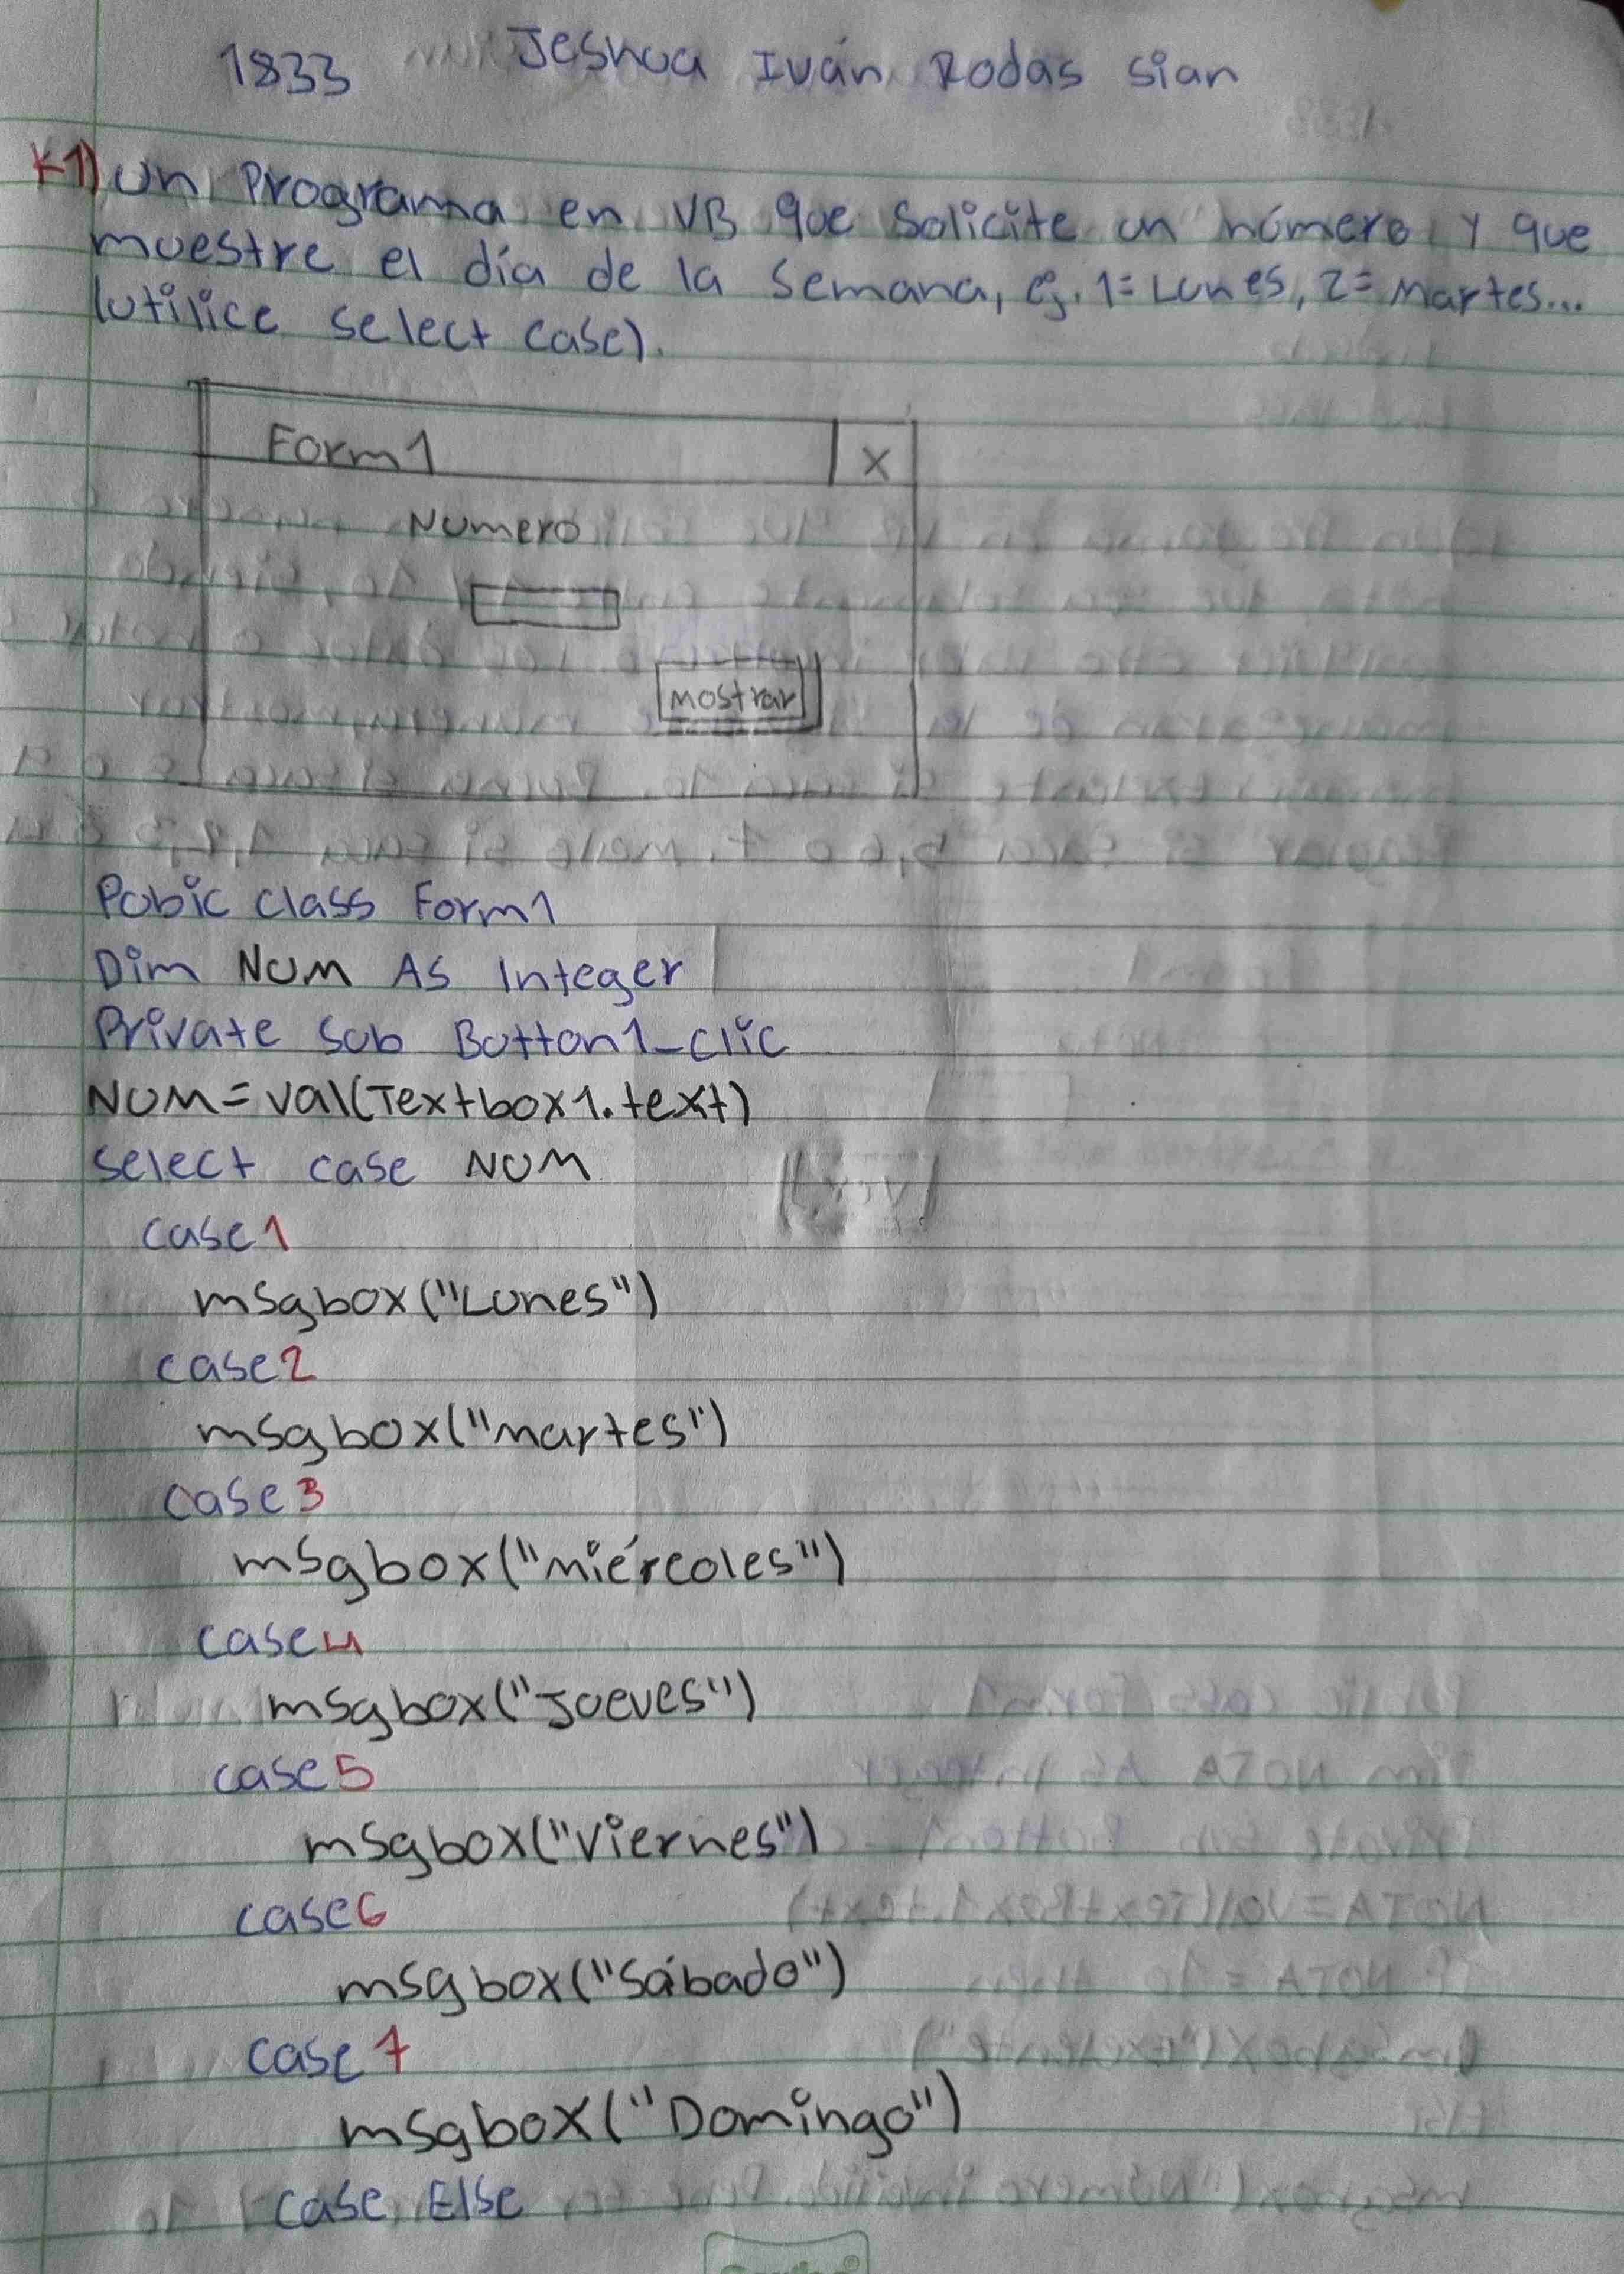 1833 Jeshua Iván Rodas Sian
1) Un Programa en VB que Solicite un número y que
muestre el día de la semana, ej. 1=Lunes, 2=Martes...
(utilice select case).
Form1 X
Numero
mostrar
Pubic class Form1
Dim NUM As Integer
Private Sub Button1_clic
NUM=val(Textbox1.text)
select case NUM
case 1
msgbox("Lunes")
case 2
msgbox("martes")
case 3
msgbox("miércoles")
case 4
msgbox("Jueves")
case 5
msgbox("Viernes")
case 6
msgbox("Sábado")
case 7
msgbox("Domingo")
case Else